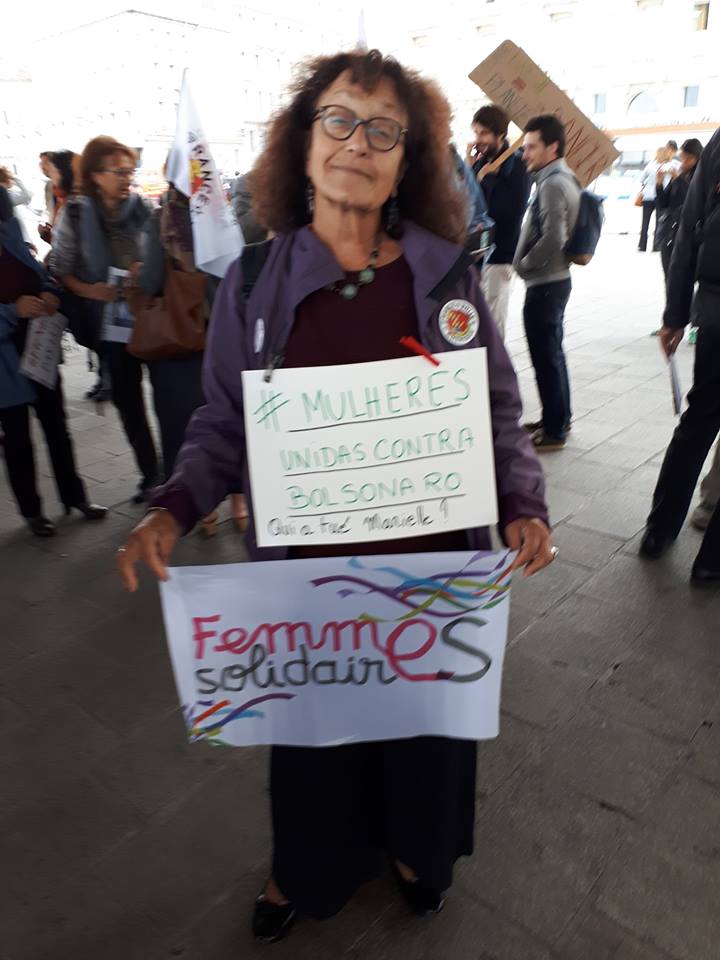 # MULHERES
UNIDAS CONTRA
BOLSONARO
Qui a tué Marielle ?
Femmes
solidaires
CANCER